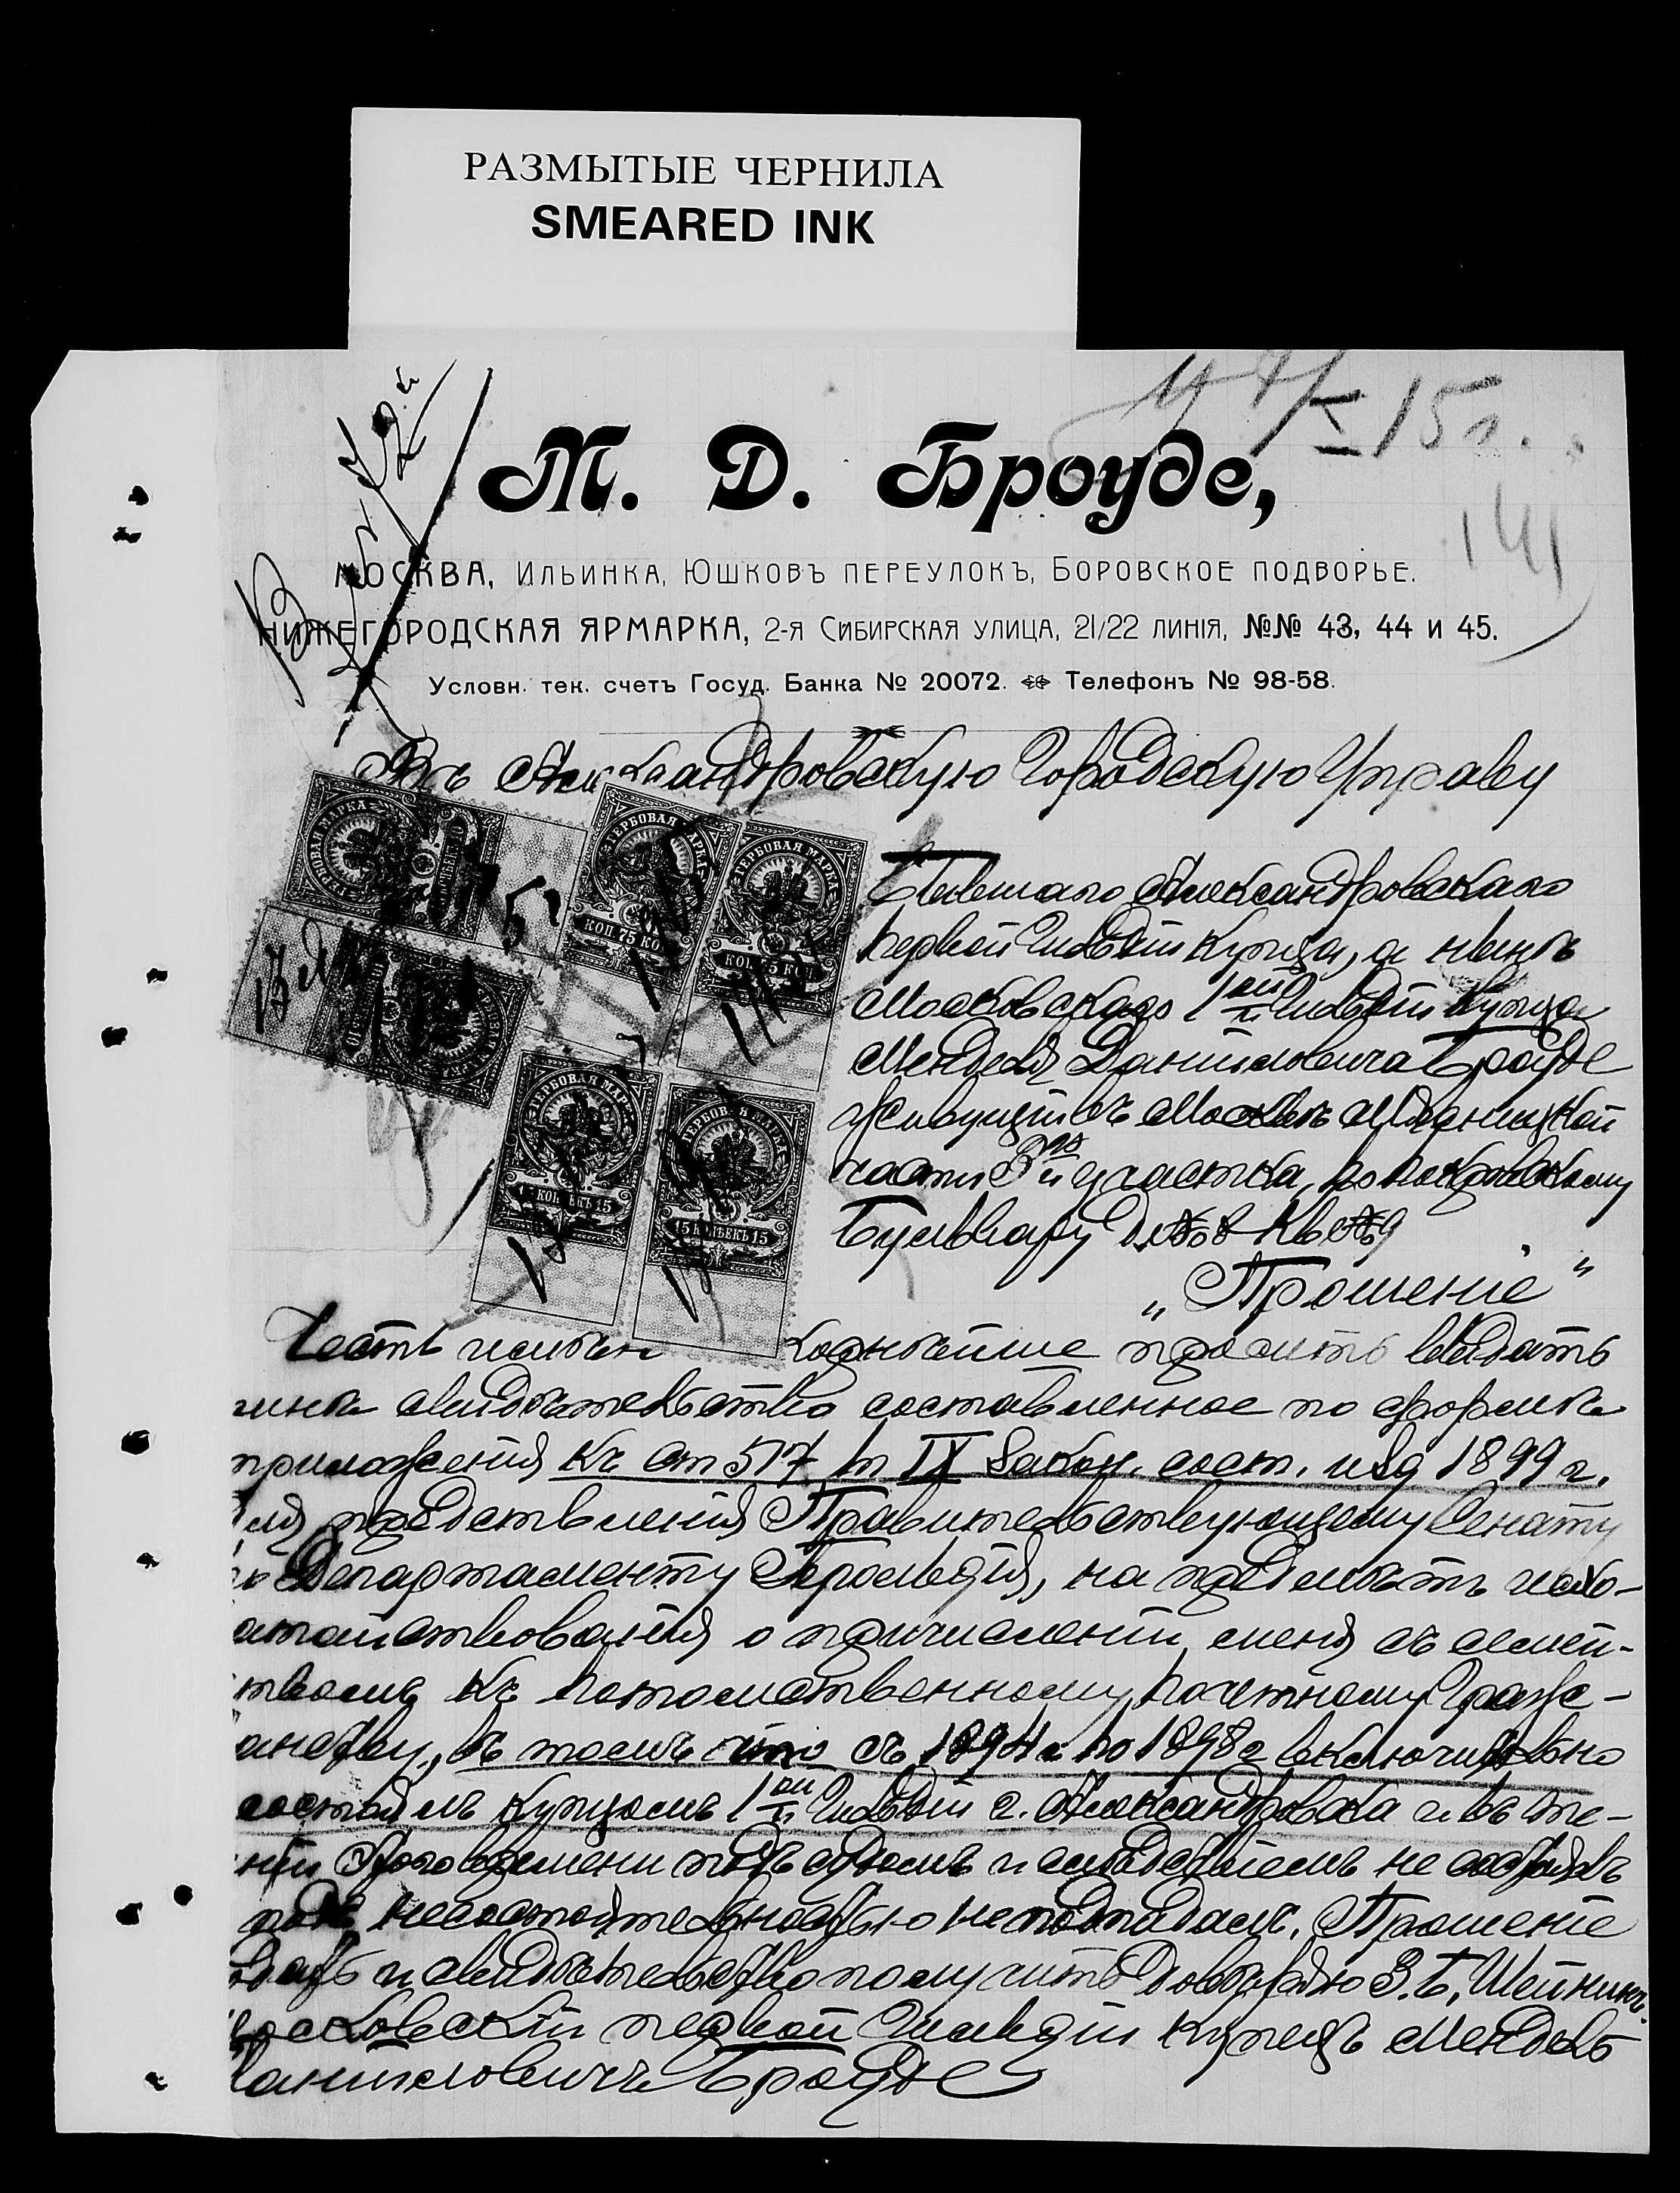 РАЗМЫТЫЕ ЧЕРНИЛА
SMEARED INK
15 г.
141
М. Д. Броуде,
МОСКВА, Ильинка, Юшковъ переулокъ, Боровское подворье.
НИЖЕГОРОДСКАЯ ЯРМАРКА, 2-я Сибирская улица, 21/22 линія, №№ 43, 44 и 45.
Условн. тек. счетъ Госуд. Банка № 20072. Телефонъ № 98-58.
Въ Александровскую Городскую Управу
ГЕРБОВАЯ МАРКА
ГЕРБОВАЯ МАРКА
КОП. 75 КОП.
ГЕРБОВАЯ МАРКА
КОП. 75 КОП.
ГЕРБОВАЯ МАРКА
15 КОПѢЕКЪ 15
ГЕРБОВАЯ МАРКА
15 КОПѢЕКЪ 15
Бывшаго Александровскаго
первой Гильдіи купца, а нынѣ
Московскаго 1ой Гильдіи Купца
Менделя Даниловича Броуде
живущій въ Москвѣ Мясницкой
части участка, по Покровскому
Бульвару д. № 8 Кв № 9
„Прошеніе"
Честь имѣю покорнѣйше просить выдать
мнѣ свидѣтельство составленное по формѣ
приложенія къ ст 517 т IX Закон. сост. изд 1899 г.
для представленія Правительствующему Сенату
по Департаменту Герольдіи, на предметъ исхо-
датайствованія о причисленіи меня съ семей-
ствомъ къ потомственному почетному Граж-
данству, въ томъ что съ 1894 г по 1898 г включительно
состоялъ купцомъ 1ой Гильдіи г. Александровска и въ те-
ченіи этого времени подъ судомъ и слѣдствіемъ не состоялъ
подъ несостоятельностью не подпадалъ. Прошеніе
подать и свидѣтельство получить довѣряю З. Б. Шейкинъ.
Московскій первой Гильдіи купецъ Мендель
Даниловичъ Броуде